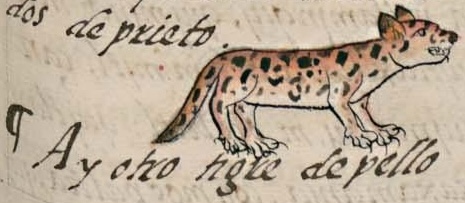 dos de prieto.
¶ Ay otro tigre de pello